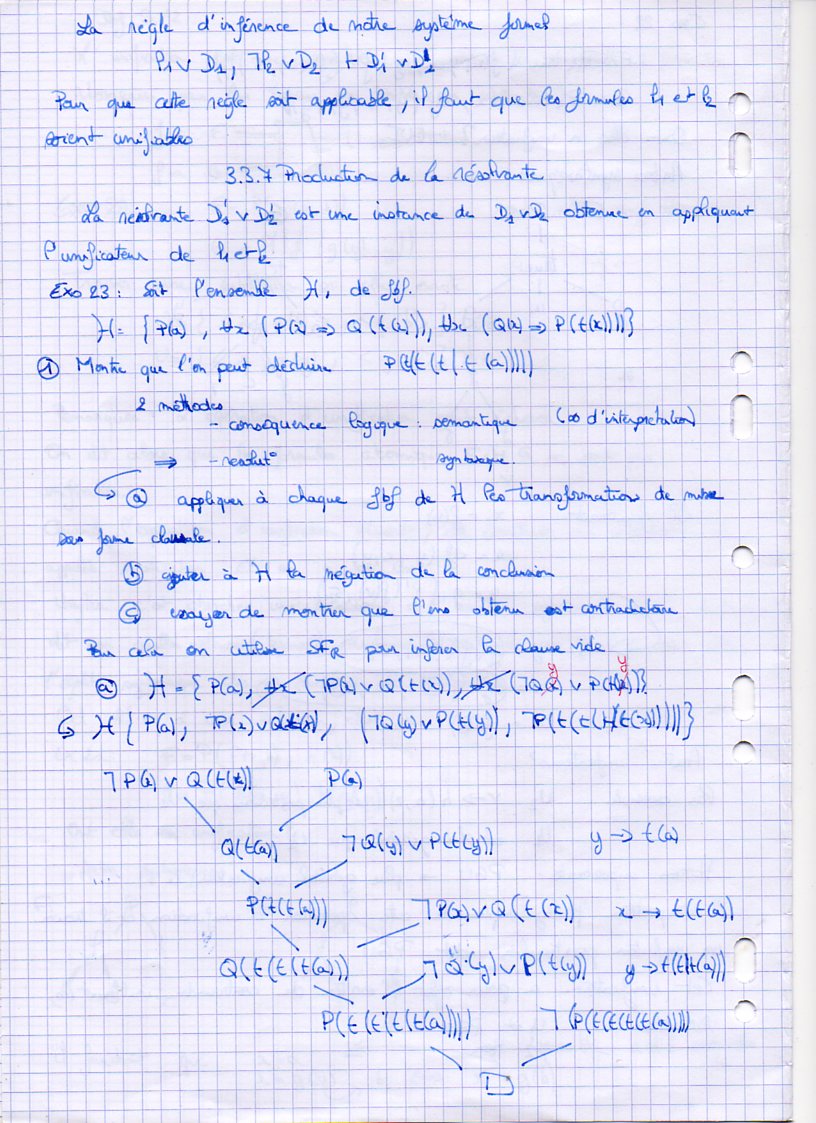 La règle d'inférence de notre système formel
P₁ ∨ D₁, ¬P₂ ∨ D₂ ⊢ D'₁ ∨ D'₂
Pour que cette règle soit applicable, il faut que les formules P₁ et P₂
soient unifiables
3.3.7 Production de la résolvante
La résolvante D'₁ ∨ D'₂ est une instance de D₁ ∨ D₂ obtenue en appliquant
l'unificateur de P₁ et P₂
Exo 23 : Soit l'ensemble H, de fbf.
H = {P(a), ∀x (P(x) => Q(t(x))), ∀x (Q(x) => P(t(x)))}
① Montre que l'on peut déduire P(t(t(t(t(a)))))
2 méthodes
- conséquence logique : sémantique (∞ d'interprétation)
=> - resolut° syntaxique.
ⓐ appliquer à chaque fbf de H les transformations de mise
sous forme clausale.
ⓑ ajouter à H la négation de la conclusion
ⓒ essayer de montrer que l'ens obtenu est contradictoire
Pour cela on utilise SFR pour inférer la clause vide
y y
ⓐ H = {P(a), ∀x (¬P(x) ∨ Q(t(x)), ∀x (¬Q(x) ∨ P(t(x))}
↪ H { P(a), ¬P(x) ∨ Q(t(x)), (¬Q(y) ∨ P(t(y)), ¬P(t(t(t(t(a)))))}
¬P(x) ∨ Q(t(x)) P(a)
Q(t(a)) ¬Q(y) ∨ P(t(y)) y → t(a)
P(t(t(a))) ¬P(x) ∨ Q(t(x)) x → t(t(a))
Q(t(t(t(a)))) ¬Q(y) ∨ P(t(y)) y → t(t(t(a)))
P(t(t(t(t(a))))) ¬(P(t(t(t(t(a)))))
□